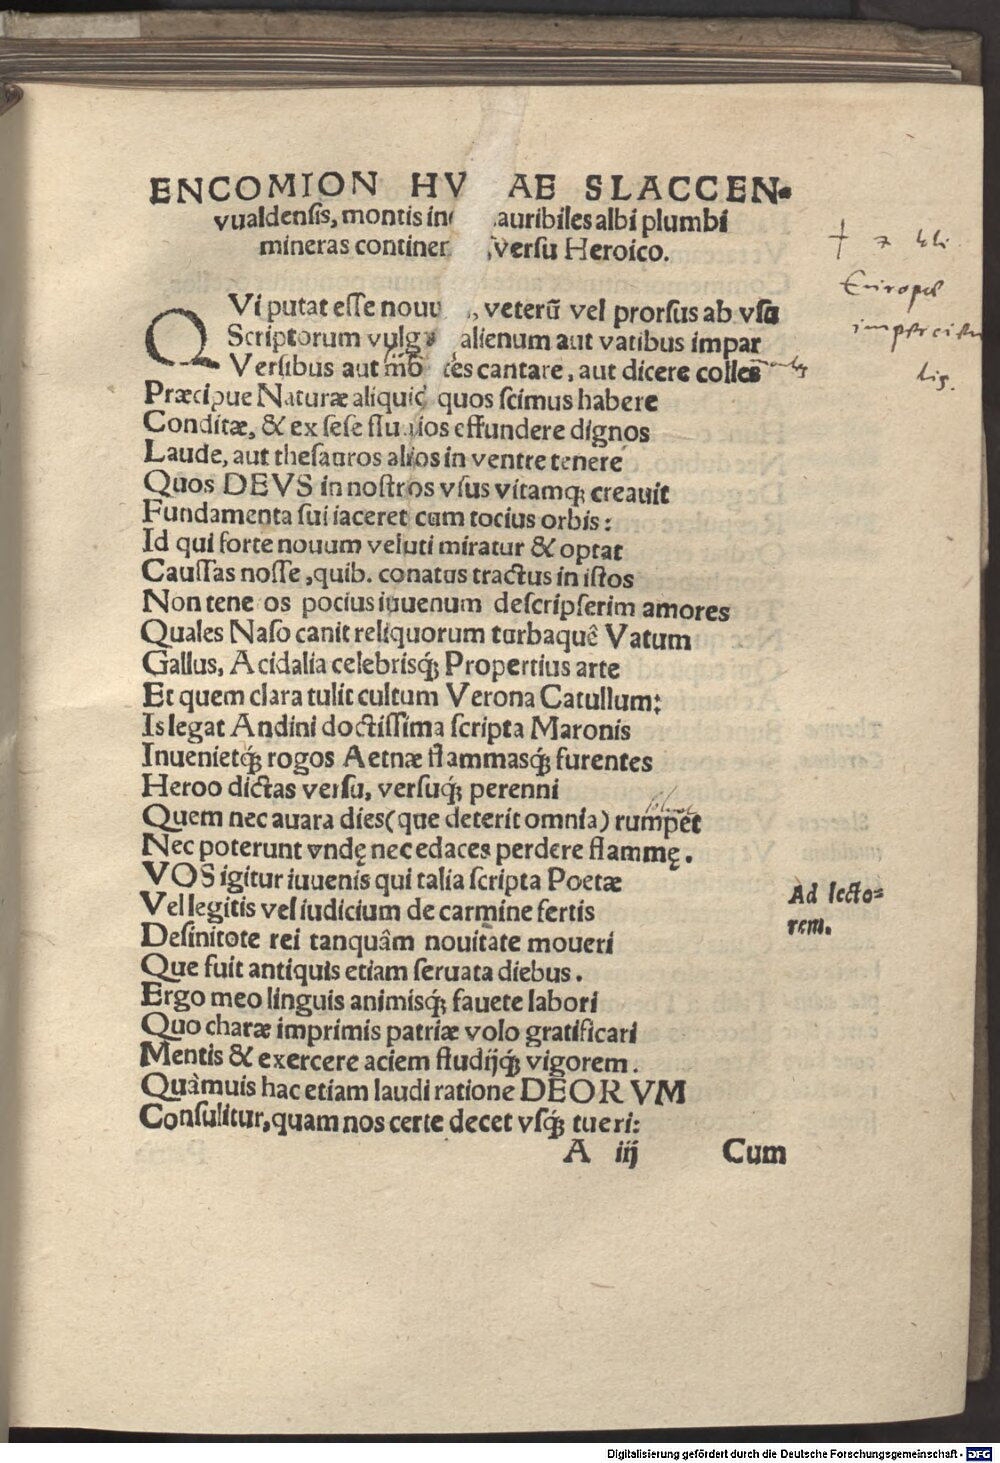 ENCOMION HV AE SLACCEN-
vualdensis, montis in auribiles albi plumbi
mineras continen versu Heroico.
QVi putat esse nouu , veterũ vel prorsus ab vsu
Scriptorum vulg alienum aut vatibus impar
Versibus aut mõ tes cantare, aut dicere colles
Præcipue Naturæ aliquid quos scimus habere
Conditæ, & ex sese fluuios effundere dignos
Laude, aut thesauros alios in ventre tenere
Quos DEVS in nostros vsus vitamqꝫ creauit
Fundamenta sui iaceret cum tocius orbis:
Id qui forte nouum veluti miratur & optat
Caussas nosse, quib. conatus tractus in istos
Non tene os pocius iuuenum descripserim amores
Quales Naso canit reliquorum turbaquê Vatum
Gallus, Acidalia celebrisqꝫ Propertius arte
Et quem clara tulit cultum Verona Catullum:
Is legat Andini doctissima scripta Maronis
Inuenietqꝫ rogos Aetnæ flammasqꝫ furentes
Heroo dictas versu, versuqꝫ perenni
Quem nec auara dies (que deterit omnia) rumpet
Nec poterunt vndę nec edaces perdere flammę.
VOS igitur iuuenis qui talia scripta Poetæ
Vel legitis vel iudicium de carmine fertis
Desinitote rei tanquâm nouitate moueri
Que fuit antiquis etiam seruata diebus.
Ad lecto-
rem.
Ergo meo linguis animisqꝫ fauete labori
Quo charæ imprimis patriæ volo gratificari
Mentis & exercere aciem studijqꝫ vigorem.
Quàmuis hac etiam laudi ratione DEORVM
Consulitur, quam nos certe decet vsqꝫ tueri:
A iij Cum
Digitalisierung gefördert durch die Deutsche Forschungsgemeinschaft - DFG